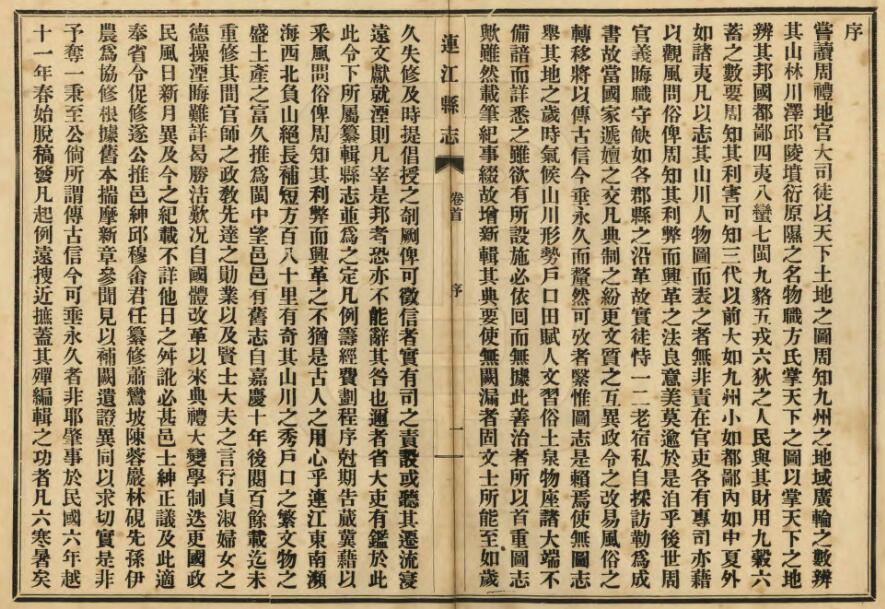 序
嘗讀周禮地官大司徒以天下土地之圖周知九州之地域廣輪之數辨
其山林川澤邱陵墳衍原隰之名物職方氏掌天下之圖以掌天下之地
辨其邦國都鄙四夷八蠻七閩九貉五戎六狄之人民與其財用九穀六
畜之數要周知其利害可知三代以前大如九州小如都鄙內如中夏外
如諸夷凡以志其山川人物圖而表之者無非責在官吏各有專司亦藉
以觀風問俗俾周知其利弊而興革之法良意美莫逾於是洎乎後世周
官義晦職守缺如各郡縣之沿革故實徒恃一二老宿私自採訪勒爲成
書故當國家遞嬗之交凡典制之紛更文質之互異政令之改易風俗之
轉移將以傳古信今垂永久而釐然可攷者繄惟圖志是賴焉使無圖志
舉其地之歲時氣候山川形勢戶口田賦人文習俗土泉物座諸大端不
備諳而詳悉之雖欲有所設施必依回而無據此善治者所以首重圖志
歟雖然載筆紀事綴故增新輯其典要使無闕漏者固文士所能至如歲
連江縣志
卷首
序
一
久失修及時提倡授之剞劂俾可徵信者實有司之責設或聽其遷流寖
遠文獻就湮則凡宰是邦者恐亦不能辭其咎也邇者省大吏有鑑於此
此令下所屬纂輯縣志並爲之定凡例籌經費劃程序尅期告蕆冀藉以
釆風問俗俾周知其利弊而興革之不猶是古人之用心乎連江東南瀕
海西北負山絕長補短方百八十里有奇其山川之秀戶口之繁文物之
盛土產之富久推爲閩中望邑邑有舊志自嘉慶十年後閱百餘載迄未
重修其間官師之政敎先達之勛業以及賢士大夫之言行貞淑婦女之
德操湮晦難詳曷勝浩歎况自國體改革以來典禮大變學制迭更國政
民風日新月異及今之紀載不詳他日之舛訛必甚邑士紳正議及此適
奉省令促修遂公推邑紳邱穆畬君任纂修蕭鸞坡陳蓉嚴林硯先孫伊
農爲協修根據舊本揣摩新章參聞見以補闕遺證異同以求切實是非
予奪一秉至公倘所謂傳古信今可垂永久者非耶肇事於民國六年越
十一年春始脫稿發凡起例遠搜近摭蓋其殫編輯之功者凡六寒暑矣